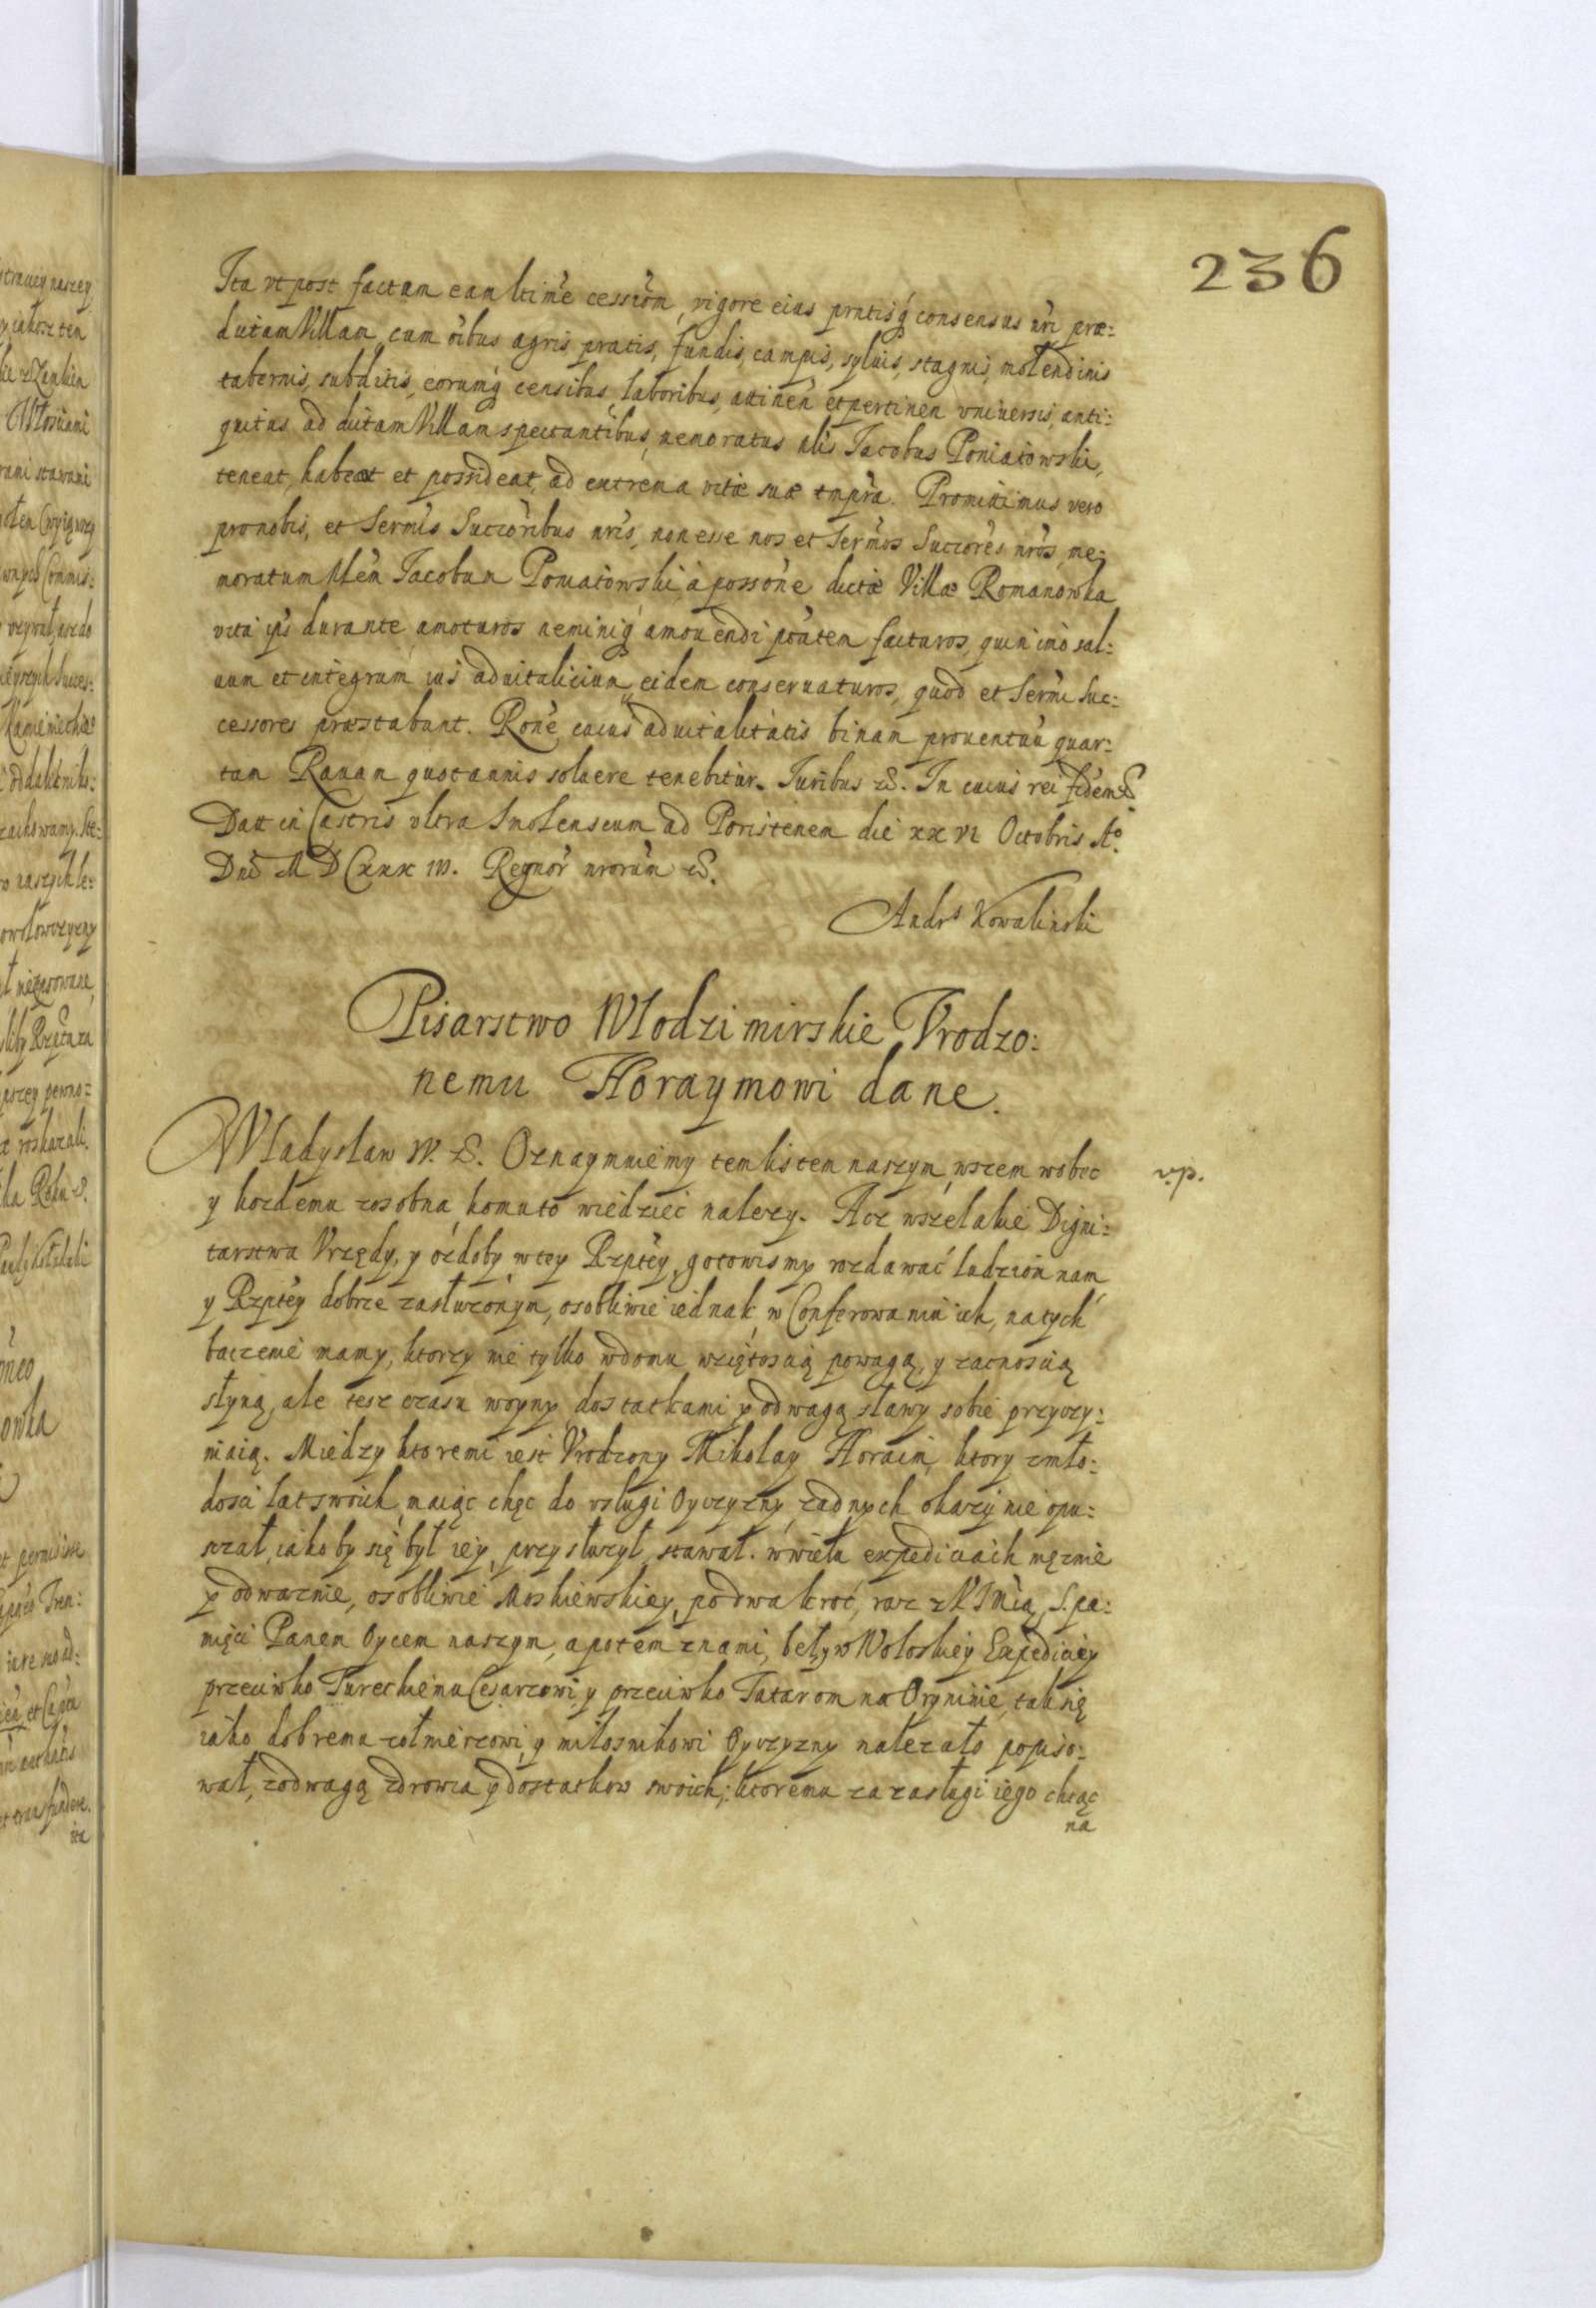 236
Ita vt post factam eam ltime cession, vigore eius prntisq consensus nri præ:
dictam Villam cum oibus agris pratis, fundis, campis, syluis, stagnis, molendinis
tabernis, subditis, eorumq censibus, laboribus, attinen et pertinen vniuersis, anti:
quitus ad dictam Villam spectantibus, memoratus nlis Jacobus Poniatowski,
teneat, habeat et possideat, ad extrema vitæ suæ tmpra. Promittimus vero
pro nobis, et Sermis Succoribus nris, non esse nos et Sermos Succores nros, me:
moratum Nlem Jacobum Poniatowski à possone dictæ Villæ Romanowka
vita ips durante amoturos neminiq amouendi ptatem facturos, quin imò sal:
uum et integrum ius aduitalicium eidem conseruaturos, quod et Sermi Suc:
cessores præstabunt. Rone cuius aduitalitatis binam prouentuu quar:
tam Rauam quotannis soluere tenebitur. Iuribus &. In cuius rei fidem &
Datt in Castris vltra Smolenscum ad Boristenem die xxvi Octobris Aº.
Dni MDCxxxiii. Regnor nrorum &.
Andrs Kowalinski
Pisarstwo Włodzimirskie Vrodzo:
nemu Horaymowi dane.
Władysław IV. &. Oznaymuiemy tem listem naszym, wszem wobec
v.p.
y kożdemu zosobna komu to wiedzieć nalezy. Acz wszelakie Digni:
tarstwa Vrzędy, y ozdoby w tey Rzptey, gotowismy rozdawać ludziom nam
y Rzptey dobrze zasłużonym, osobliwie iednak w Conferowaniu ich, na tych
baczenie mamy, ktorzy nie tylko w domu wziętoscią powagą, y zacnoscią
słyną, ale tesz czasu woyny, dostatkami y odwagą sławy sobie przyczy:
niaią. Miedzy ktoremi iest Vrodzony Mikołay Horaim, ktory z mło:
dosci lat swoich, maiąc chęc do vsługi Oyczyzny, żadnych okazij nie opu:
szczał, iakoby się był iey przysłużył, stawał. w wielu expediciach mężnie
y odwaznie, osobliwie Moskiewskiey, po dwa kroć, raz z KJMcią S. pa:
mięci Panem Oycem naszym, a potem z nami, beły w Wołoskiey Expediciey
przeciwko Tureckiemu Cesarzowi, y przeciwko Tatarom na Oryninie, tak się
iako dobremu żołnierzowi, y miłosnikowi Oyczyzny nalezało popiso:
wał, z odwagą zdrowia y dostatkow swoich; ktoremu za zasługi iego chcąc
na